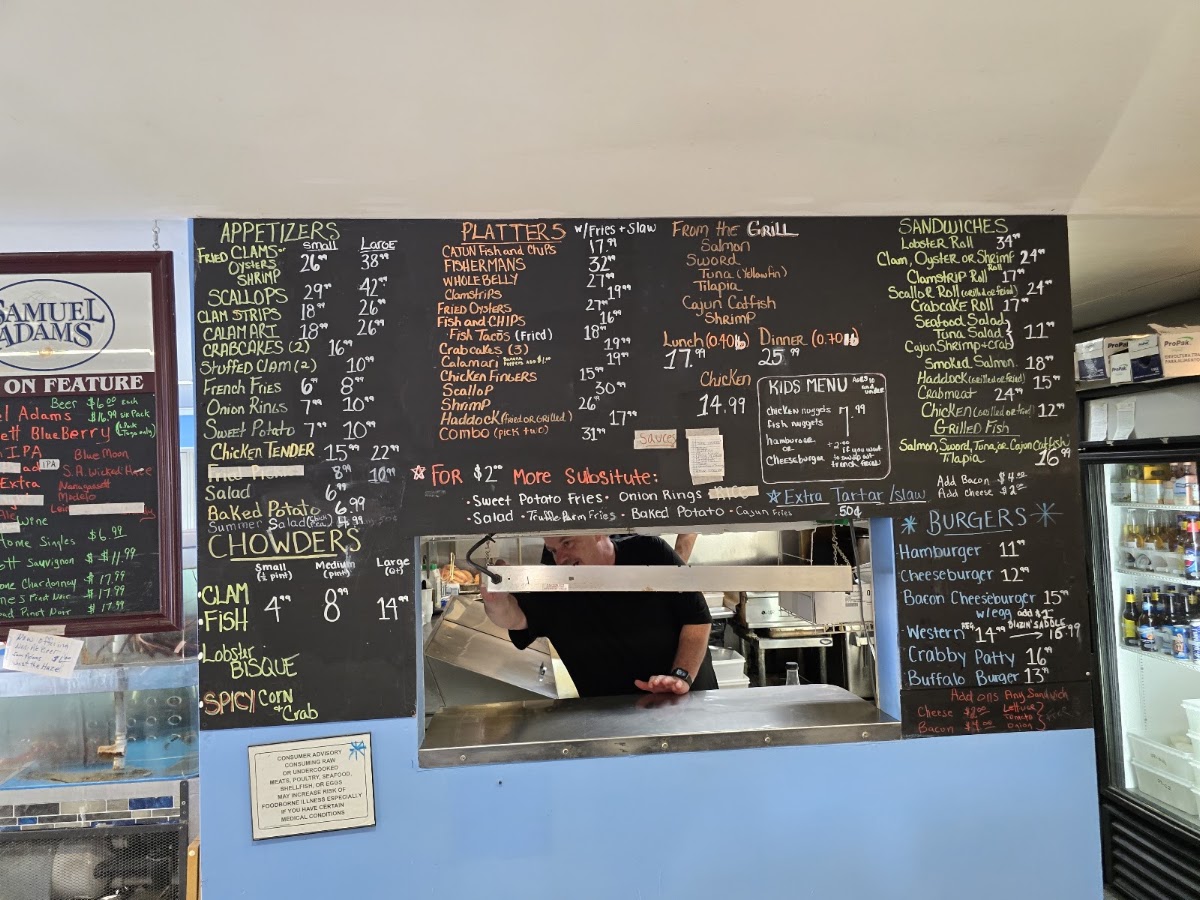 SAMUEL
ADAMS
ON FEATURE
Beer $6.00 each
Adams $16.99 six Pack
BlueBerry
IPA Blue Moon
IPA S.A. Wicked Haze
Extra Naragansett
Modelo
Wine
Home Singles $6.99
Sauvignon $11.99
Chardonnay $17.99
Pinot Noir $17.99
Pinot Noir $17.99
New offering
APPETIZERS
Small Large
FRIED CLAMS
OYSTERS 26.99 38.99
SHRIMP
SCALLOPS 29.99 42.99
CLAM STRIPS 18.99 26.99
CALAMARI 18.99 26.99
CRABCAKES (2) 16.99
STUFFED CLAM (2) 10.99
French Fries 6.99 8.99
Onion Rings 7.99 10.99
Sweet Potato 7.99 10.99
CHICKEN TENDER 15.99 22.99
8.99 10.99
Salad 6.99
Baked Potato 6.99
Summer Salad
CHOWDERS
Small (½ pint) Medium (pint) Large (Qt)
CLAM
FISH 4.99 8.99 14.99
Lobster
BISQUE
SPICY Corn
+ Crab
PLATTERS w/Fries + Slaw
CAJUN Fish and Chips 17.99
FISHERMANS 32.99
WHOLE BELLY 27.99
Clamstrips 19.99
FRIED Oysters 27.99
Fish and CHIPS 16.99
Fish Tacos (Fried) 18.99
Crabcakes (3) 19.99
Calamari Banana Peppers add $1.00 19.99
CHICKEN FINGERS 15.99
Scallop 30.99
Shrimp 26.99
Haddock (Fried or Grilled) 17.99
Combo (pick two) 31.99
Sauces
From the GRILL
Salmon
Sword
Tuna (Yellowfin)
Tilapia
Cajun Catfish
Shrimp
Lunch (0.40 lb) Dinner (0.70 lb)
17.99 25.99
Chicken
14.99
KIDS MENU Ages 10 and under
chicken nuggets 7.99
fish nuggets
hamburger
or
Cheeseburger
+2.00 if you want to swap out french fries!
☆ FOR $2.00 More Subsitute:
• Sweet Potato Fries • Onion Rings
• Salad • Truffle Parm Fries • Baked Potato • Cajun Fries
☆ Extra Tartar/slaw
50¢
SANDWICHES
Lobster Roll 34.99
Clam, Oyster or Shrimp Roll 24.99
Clamstrip Roll 17.99
Scallop Roll (Grilled or fried) 24.99
Crabcake Roll 17.99
Seafood Salad
Tuna Salad 11.99
Cajun Shrimp + Crab
Smoked Salmon 18.99
Haddock (Grilled or fried) 15.99
Crabmeat 24.99
Chicken (Grilled or fried) 12.99
GRilled Fish
Salmon, Sword, Tuna, or Cajun Catfish
Tilapia 16.99
Add Bacon $4.00
Add cheese $2.00
BURGERS
Hamburger 11.99
Cheeseburger 12.99
Bacon Cheeseburger 15.99
w/egg add $1
Western REG 14.99 → BLAZIN' SADDLE 16.99
Crabby Patty 16.99
Buffalo Burger 13.99
Add ons Any Sandwich
Cheese $2.00 Lettuce
Tomato
Bacon $4.00 Onion
CONSUMER ADVISORY
CONSUMING RAW
OR UNDERCOOKED
MEATS, POULTRY, SEAFOOD,
SHELLFISH, OR EGGS
MAY INCREASE RISK OF
FOODBORNE ILLNESS ESPECIALLY
IF YOU HAVE CERTAIN
MEDICAL CONDITIONS
ProPak
ProPak
ProPak